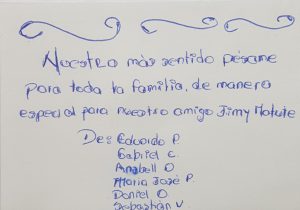 Nuestro más sentido pésame
para toda la familia, de manera
especial para nuestro amigo Jimy Matute
De: Eduardo P.
Gabriel C.
Anabell O
María José P.
Daniel O.
Sebastián V.